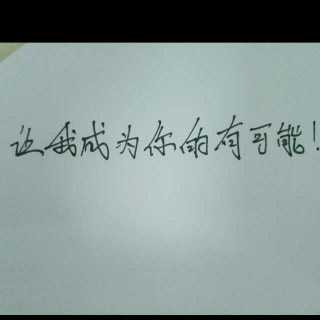 让我成为你的有可能!